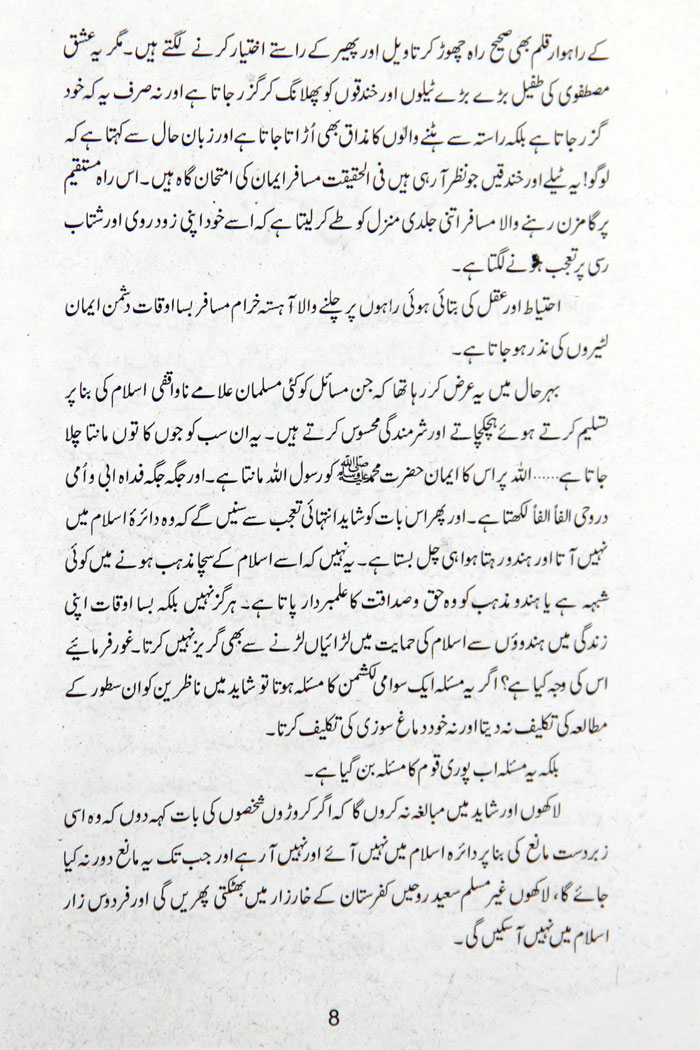 کے راہوار قلم بھی صحیح راہ چھوڑ کر تاویل اور پھیر کے راستے اختیار کرنے لگتے ہیں۔ مگر یہ عشق
مصطفوی کی طفیل بڑے بڑے ٹیلوں اور خندقوں کو پھلانگ کر گزر جاتا ہے اور نہ صرف یہ کہ خود
گزر جاتا ہے بلکہ راستہ سے ہٹنے والوں کا مذاق بھی اُڑاتا جاتا ہے اور زبان حال سے کہتا ہے کہ
لوگو! یہ ٹیلے اور خندقیں جو نظر آ رہی ہیں فی الحقیقت مسافر ایمان کی امتحان گاہ ہیں۔ اس راہ مستقیم
پر گامزن رہنے والا مسافر اتنی جلدی منزل کو طے کر لیتا ہے کہ اسے خود اپنی زود روی اور شتاب
رسی پر تعجب ہونے لگتا ہے۔
احتیاط اور عقل کی بتائی ہوئی راہوں پر چلنے والا آہستہ خرام مسافر بسا اوقات دشمن ایمان
لٹیروں کی نذر ہو جاتا ہے۔
بہرحال میں یہ عرض کر رہا تھا کہ جن مسائل کو کئی مسلمان علامے ناواقفی اسلام کی بنا پر
تسلیم کرتے ہوئے ہچکچاتے اور شرمندگی محسوس کرتے ہیں۔ یہ ان سب کو جوں کا توں مانتا چلا
جاتا ہے......اللہ پر اس کا ایمان حضرت محمد ﷺ کو رسول اللہ مانتا ہے۔ اور جگہ جگہ فداہ ابی و اُمی
دروحی الفاً الفاً لکھتا ہے۔ اور پھر اس بات کو شاید انتہائی تعجب سے سنیں گے کہ وہ دائرۂ اسلام میں
نہیں آتا اور ہندو رہتا ہوا ہی چل بستا ہے۔ یہ نہیں کہ اسے اسلام کے سچا مذہب ہونے میں کوئی
شبہہ ہے یا ہندو مذہب کو وہ حق و صداقت کا علمبردار پاتا ہے۔ ہرگز نہیں بلکہ بسا اوقات اپنی
زندگی میں ہندوؤں سے اسلام کی حمایت میں لڑائیاں لڑنے سے بھی گریز نہیں کرتا۔ غور فرمائیے
اس کی وجہ کیا ہے؟ اگر یہ مسئلہ ایک سوامی لکشمن کا مسئلہ ہوتا تو شاید میں ناظرین کو ان سطور کے
مطالعہ کی تکلیف نہ دیتا اور نہ خود دماغ سوزی کی تکلیف کرتا۔
بلکہ یہ مسئلہ اب پوری قوم کا مسئلہ بن گیا ہے۔
لاکھوں اور شاید میں مبالغہ نہ کروں گا کہ اگر کروڑوں شخصوں کی بات کہہ دوں کہ وہ اسی
زبردست مانع کی بنا پر دائرہ اسلام میں نہیں آئے اور نہیں آ رہے اور جب تک یہ مانع دور نہ کیا
جائے گا، لاکھوں غیر مسلم سعید روحیں کفرستان کے خارزار میں بھٹکتی پھریں گی اور فردوس زار
اسلام میں نہیں آ سکیں گی۔
8